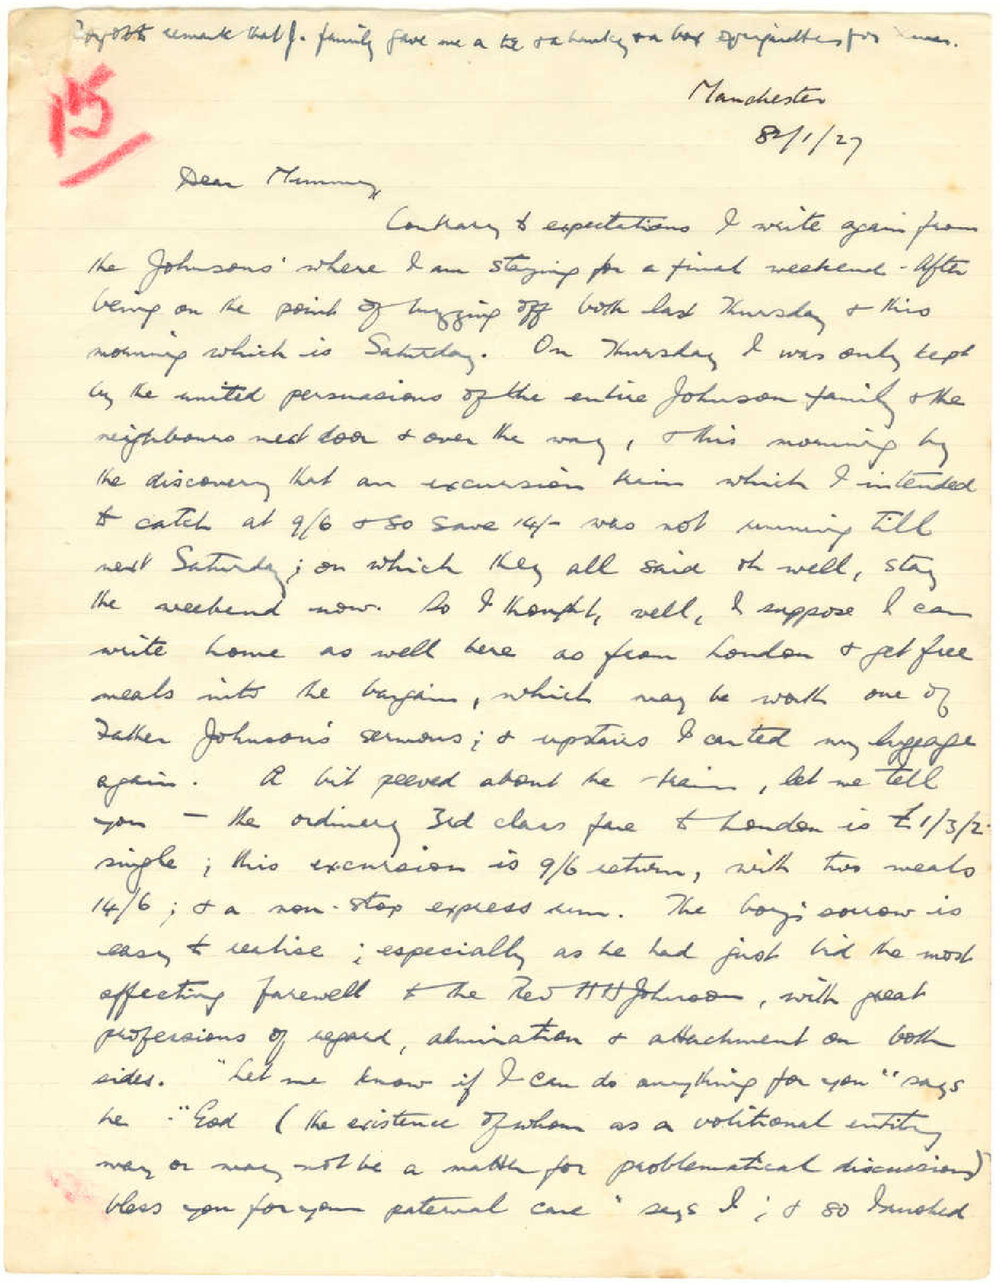 Forgot to remark that J. family gave me a tie & a hanky & a box of cigarettes for Xmas.
15
Manchester
8/1/27
Dear Mummy,
Contrary to expectations I write again from
the Johnsons' where I am staying for a final weekend - After
being on the point of buzzing off both last Thursday & this
morning which is Saturday. On Thursday I was only kept
by the united persuasions of the entire Johnson family & the
neighbours next door & over the way, & this morning by
the discovery that an excursion train which I intended
to catch at 9/6 & so save 14/- was not running till
next Saturday; on which they all said oh well, stay
the weekend now. So I thought, well, I suppose I can
write home as well here as from London & get free
meals into the bargain, which may be worth one of
Father Johnson's sermons; & upstairs I carted my luggage
again. A bit peeved about the train, let me tell
you — the ordinary 3rd class fare to London is £1/3/2
single; this excursion is 9/6 return, with two meals
14/6; & a non-stop express run. The boy's sorrow is
easy to realise; especially as he had just bid the most
affecting farewell to the Rev H H Johnson, with great
professions of regard, admiration & attachment on both
sides. "Let me know if I can do anything for you" says
he - "God (the existence of whom as a volitional entity
may or may not be a matter for problematical discussion)
bless you for your paternal care" says I; & so I rushed